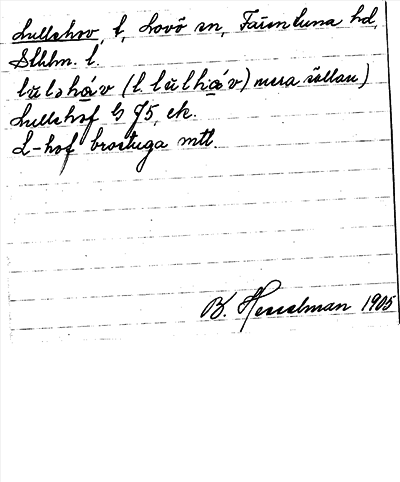 Lullehov, t, Lovö sn, Färentuna hd,
Sthlm. l.
lŭləhȧv (l. lŭlhȧv) mera sällan)
Lullehof G 75, ek.
L-hof brostuga mtl.
B. Hesselman 1905